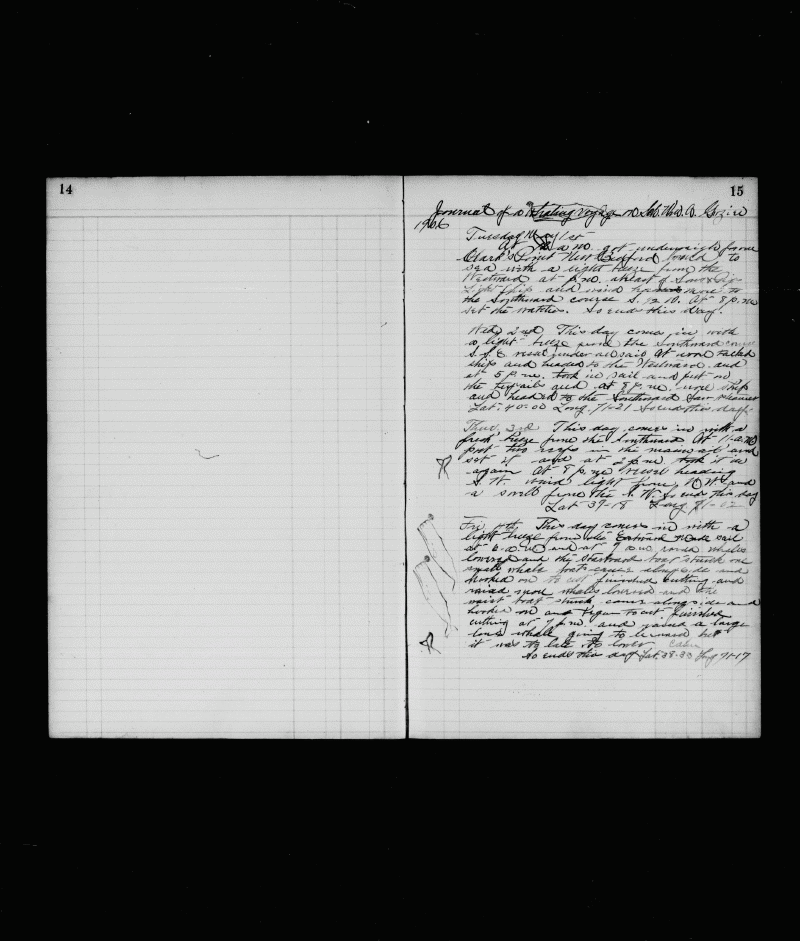 14
15
Journal of a Whaling Voyage on Sch. Wm. A. Grozier
1906
Tuesday May 1st
At a.m. got underweigh from
Clark's Point New Bedford bound to
sea with a light breeze from the
Westward at p.m. abreast of Sow & Pig
Light Ship and wind to
the Southward course S. At 8 p.m.
set the watches. So ends this day.
Wed. 2nd This day comes in with
a light breeze from the Southward course
S.S.E. vessel under all sail At noon tacked
ship and headed to the Westward and
at 5 p.m. took in sail and put on
the and at 8 p.m. wore ship
and headed to the Southward
Lat. 40-00 Long. 71-21 So ends this day.
Thur. 3rd This day comes in with a
fresh breeze from the Southward At 11 a.m.
put two reefs in the mainsail and
set it and at 2 p.m. took it in
again At 8 p.m. vessel heading
S.W. wind light from N.W. and
a swell from the S.W. So ends this day
Lat 39-18 Long 71-02
Fri. 4th This day comes in with a
light breeze from the Eastward made sail
at and at 7 a.m. raised whales
lowered and the Starboard boat struck one
small whale boat came alongside and
hooked on to cut finished cutting and
raised more whales lowered and the
waist boat struck came alongside and
hooked on and began to cut finished
cutting at 7 p.m. and raised a large
lone whale going to leeward but
it was to late to lower
So ends this day Lat. 38-33 Long 71-17